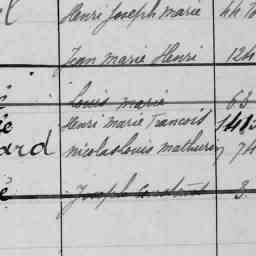 Henri Joseph Marie 44
Jean Marie Henri 124
Louis marie 63
Henri Marie Francois 1415
ard nicolas louis mathurin 74
Joseph 3